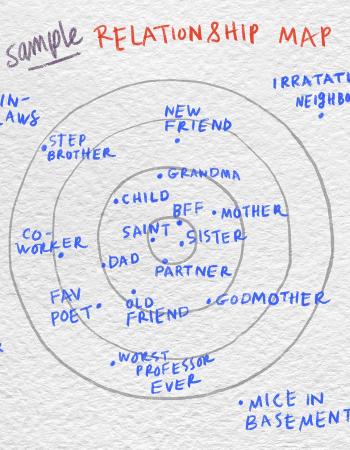 sample RELATIONSHIP MAP
IRRATATI
NEIGHBO
IN-
LAWS
NEW
FRIEND
STEP
BROTHER
GRANDMA
CHILD
BFF
MOTHER
SAINT
SISTER
CO-
WORKER
DAD
PARTNER
FAV
POET
OLD
FRIEND
GODMOTHER
WORST
PROFESSOR
EVER
MICE IN
BASEMENT